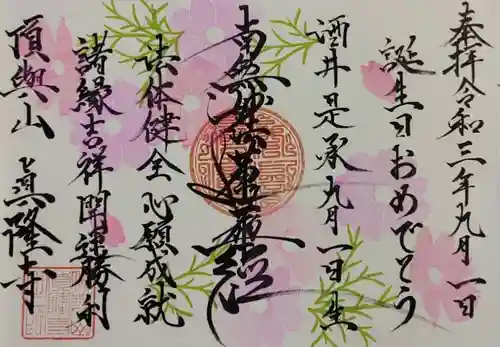 奉拝令和三年九月一日
誕生日おめでとう
酒井是承九月一日生
南無妙法蓮華経
身体健全心願成就
諸縁吉祥開運勝利
頂與山 真隆寺